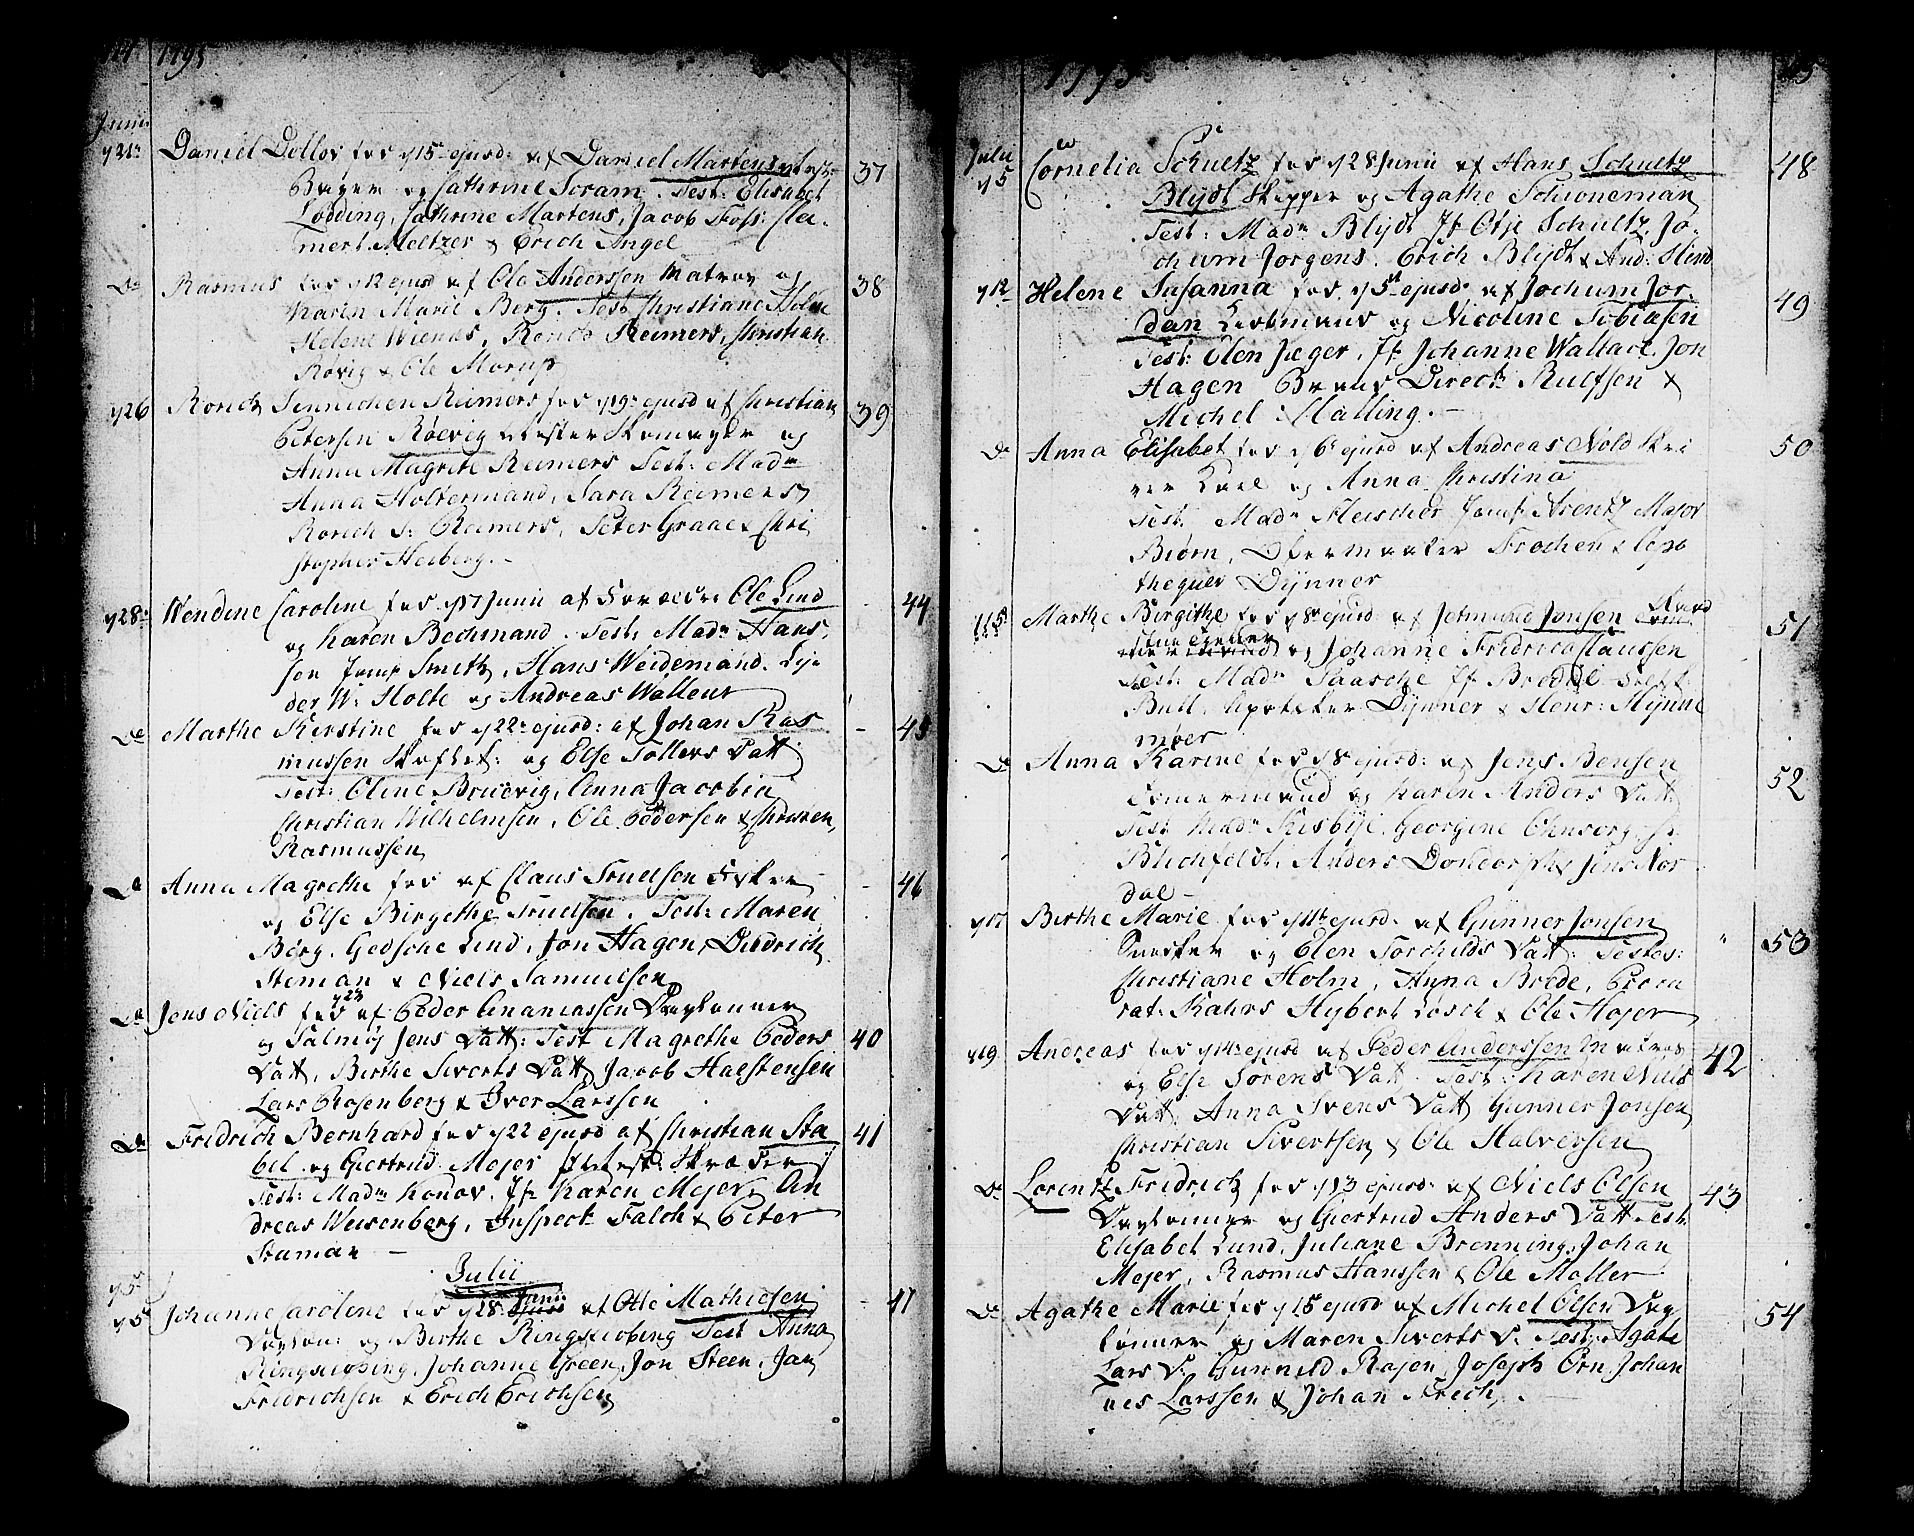 114 1795
Junii
y 21de Daniel Dellos fød y 15 ejusd: af Daniel Martens Mest: 37
Bager og Cathrine Scram. Test: Elisabet
Lødding, Cathrine Martens, Jacob Foss: Cle-
ment Meltzer & Erich Angel
Do Rasmus fød y 12 ejusd af Ole Anderssen Matros og 38
Karen Marie Berg. Test: Christiane Holm
Helene Wienes, Reimers, Christian
Røvig & Ole Morup
y 26 Rorich Sennichen Reimers fød y 19 ejusd af Christian 39
Petersen Røevig Mester Skomager og
Anna Magrete Reimers Test: Madm
Anna Holtermand, Sara Reimers
Rorich S: Reimers, Peter Graae & Chri
stopher Heiberg. -
y 28: Wendine Caroline fød y 17 Junii af Forældre Ole Lind - 44
og Karen Bechmand. Test: Madm Hans-
sen Jomf Smith, Hans Weidemand. Ly-
der W: Holte og Andreas Wallour
Do Marthe Kirstine fød y 22: ejusd: af Johan Ras - 45
mussen og Else Tollevs Datt
Test: Oline Bruevig, Anna Jacobin
Christian Wilhelmsen, Ole Pedersen & Christen
Rasmussen
Do Anna Magrethe fød af Claus Truelsen Fisker - 46
og Else Birgethe Truelsen. Test: Maren
Berg. Gedsche Lind, Jon Hagen, Diedrich
Steman & Niels Samuelsen
Do Jens Niels fød y 23 af Peder Ananiassen Dagløner
og Salmøj Jens Datt: Test Magrethe Peders 40
Datt, Birthe Siverts Datt, Jacob Halstensen
Lars Rosenberg & Iver Larssen
Do Fridrich Bernhard fød y 22 ejusd af Christian Sta 41
bel og Giertrud Mejer Skræder
Test: Madm Konov. Jf: Karen Mejer, An
dreas Weisenberg, Inspect: Falch & Peter
Staman -
Julii
y 5
y 5 Johanne Carolene fød y 28: Junii af Otto Mathiesen - 47
Dagløn: og Birthe Ringkiøbing Test Anna
Ringkiøbing, Johanne Green, Jon Steen, Jan
Fridrichsen & Erich Erichsen
1795 115
Julii
y 5 Cornelia Schultz fød y 28 Junii af Hans Schultz 48
Blijdt Skipper og Agathe Schioneman
Test: Madm Blijdt Jf Otje Schultz, Jo-
chum Jorgens. Erich Blijdt & And: Hend
y 12 Helene Susanna fød y 5t ejusd: af Jochum Jor- 49
dan og Nicoline Tobiasen
Test: Elen Jæger, Jf: Johanne Wallace, Jon
Hagen Direct: Rulfsen &
Michel Malling. -
Do Anna Elisabet fød y 6 ejusd af Andreas Nold Skri 50
ver Karl og Anna Christina
Test. Madm Fleischer Jomf Arentz Major
Biørn, Frochen & Apo
theqver Dynner
y 15 Marthe Birgithe fød y 8 ejusd: af Jetmund Jonsen 51
og Johanne Fridrica Claussen
Test: Madm Paasche Jf Bredal
Bull, Apoteker Dynner & Henr: Hynne
møer
Do Anna Karine fød y 8 ejusd: af Jens Bensen 52
Tømermand og Karen Anders Datt
Test Madm Kiesbye, Georgine
Blichfeldt, Anders Dondorph & Jens Nor
dal -
y 17 Birthe Marie fød y 11te ejusd: af Gunner Jonsen " 53
Snedker og Elen Torchilds Datt: Testes:
Christiane Holm, Anna Brede,
Kahrs Hybert Losch & Ole Hojer
y 19 Andreas fød y 14 ejusd af Peder Anderssen Matros 42
og Else Sørens Datt. Test: Karen Niels
Datt. Anna Svens Datt Gunner Jonsen
Christian Sivertsen & Ole Halversen
Do Lorentz Fridrich fød y 13 ejusd: af Niels Olsen 43
Dagløner og Giertrud Anders Datt Test:
Elisabet Lund, Juliane Bronning, Johan
Mejer, Rasmus Hanssen & Ole Møller
Do Agathe Marie fød y 15 ejusd af Michel Olsen Dag 54
lønner og Maren Siverts D. Test: Agate
Lars D. Gunnild Rasen, Joseph Orn, Johan
nes Larssen & Johan Frich, .